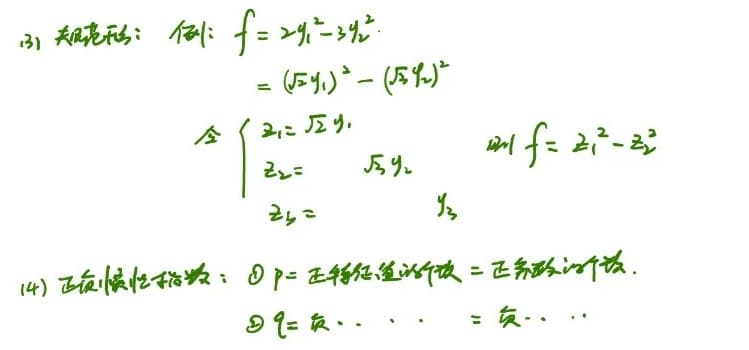 (3) 规范形: 例: f = 2y₁² - 3y₂².
= (√2 y₁)² - (√3 y₂)²
令 { z₁ = √2 y₁
z₂ = √3 y₂ 则 f = z₁² - z₂²
z₃ = y₃
(4) 正负惯性指数: ① p = 正特征值的个数 = 正系数的个数.
② q = 负 · · · · = 负 · · · ·